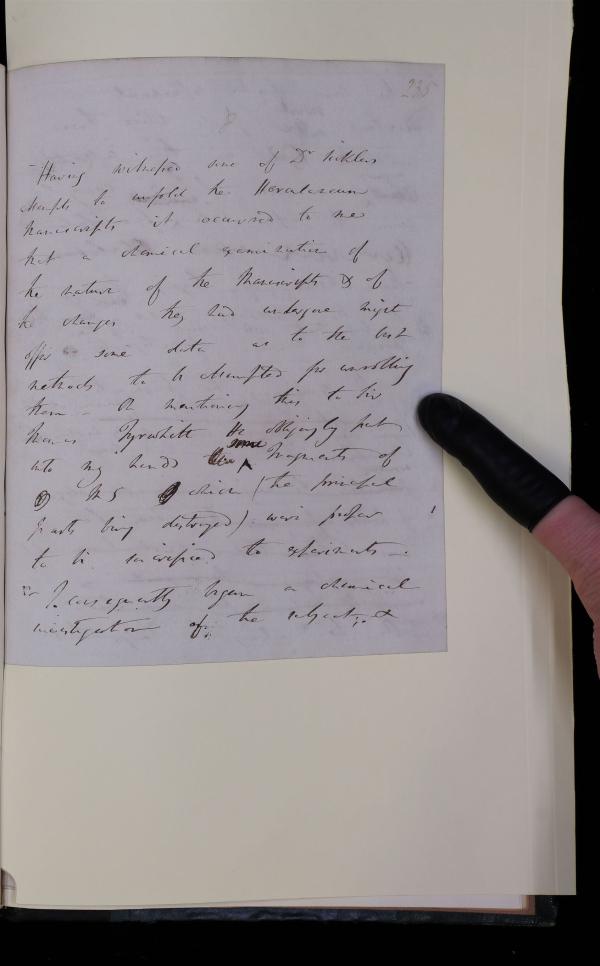 235
8
- Having witnessed some of Dr Sicklers
attempts to unfold the Herculaneum
Manuscripts it occurred to me
that a chemical examination of
the nature of the Manuscripts & of
the changes they had undergone might
offer some data as to the best
methods to be attempted for unrolling
them - On mentioning this to Sir
Thomas Tyrwhitt He obligingly put
into my hands some fragments of
MS which (the principal
parts being destroyed) were proper
to be sacrificed to experiments -
I consequently began a chemical
investigation of the subject; &